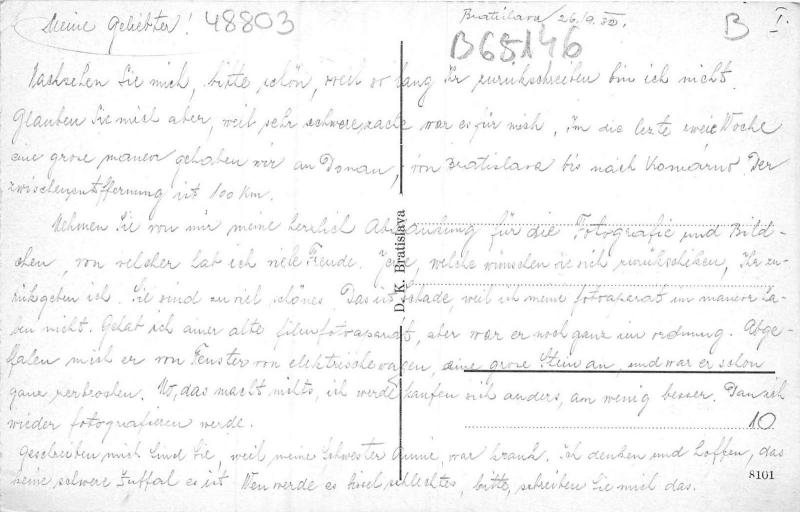 Meine Geliebter! 48803
Bratislava 26./9. 32.
B I.
B65146
Nachsehen Sie mich, bitte schön, weil so lang Ihr zurukschreiben bin ich nicht.
Glauben Sie mich aber, weil sehr schwere sache war es für mich. Im die lezte zweie Woche
eine grose, manevr gehaben wir an Donau, von Bratislava bis nach Komárno. Der
zwischenentffernung ist 100 km.
Nehmen Sie von mir meine herzlich für die Fotografie und Bild-
chen, von welcher hat ich viele Freude. welche wünschen sie sich zurukschiken, Ihr zu-
rükgeben ich. Sie sind zu viel schönes. Das ist Schade, weil ich meine fotoaparat im manevr ha-
ben nicht. Gehat ich einer alte filmfotoaparat, aber war er noch ganz im ordnung. Abge-
fallen mich er von Fenster von elektrische wagen, eine grose Stein an, und war er schon
ganz zerbrochen. No, das macht nichts, ich werde kaufen sich anders, am wenig besser. Dan ich
wieder fotografieren werde.
geschreiben mich Sind Sie, weil meine Schwester Annie, war krank. Ich denken und hoffen, das
keine schwere es ist. Wen werde es schlechtes, bitte, schreiben Sie mich das.
D. K. Bratislava
10
8101